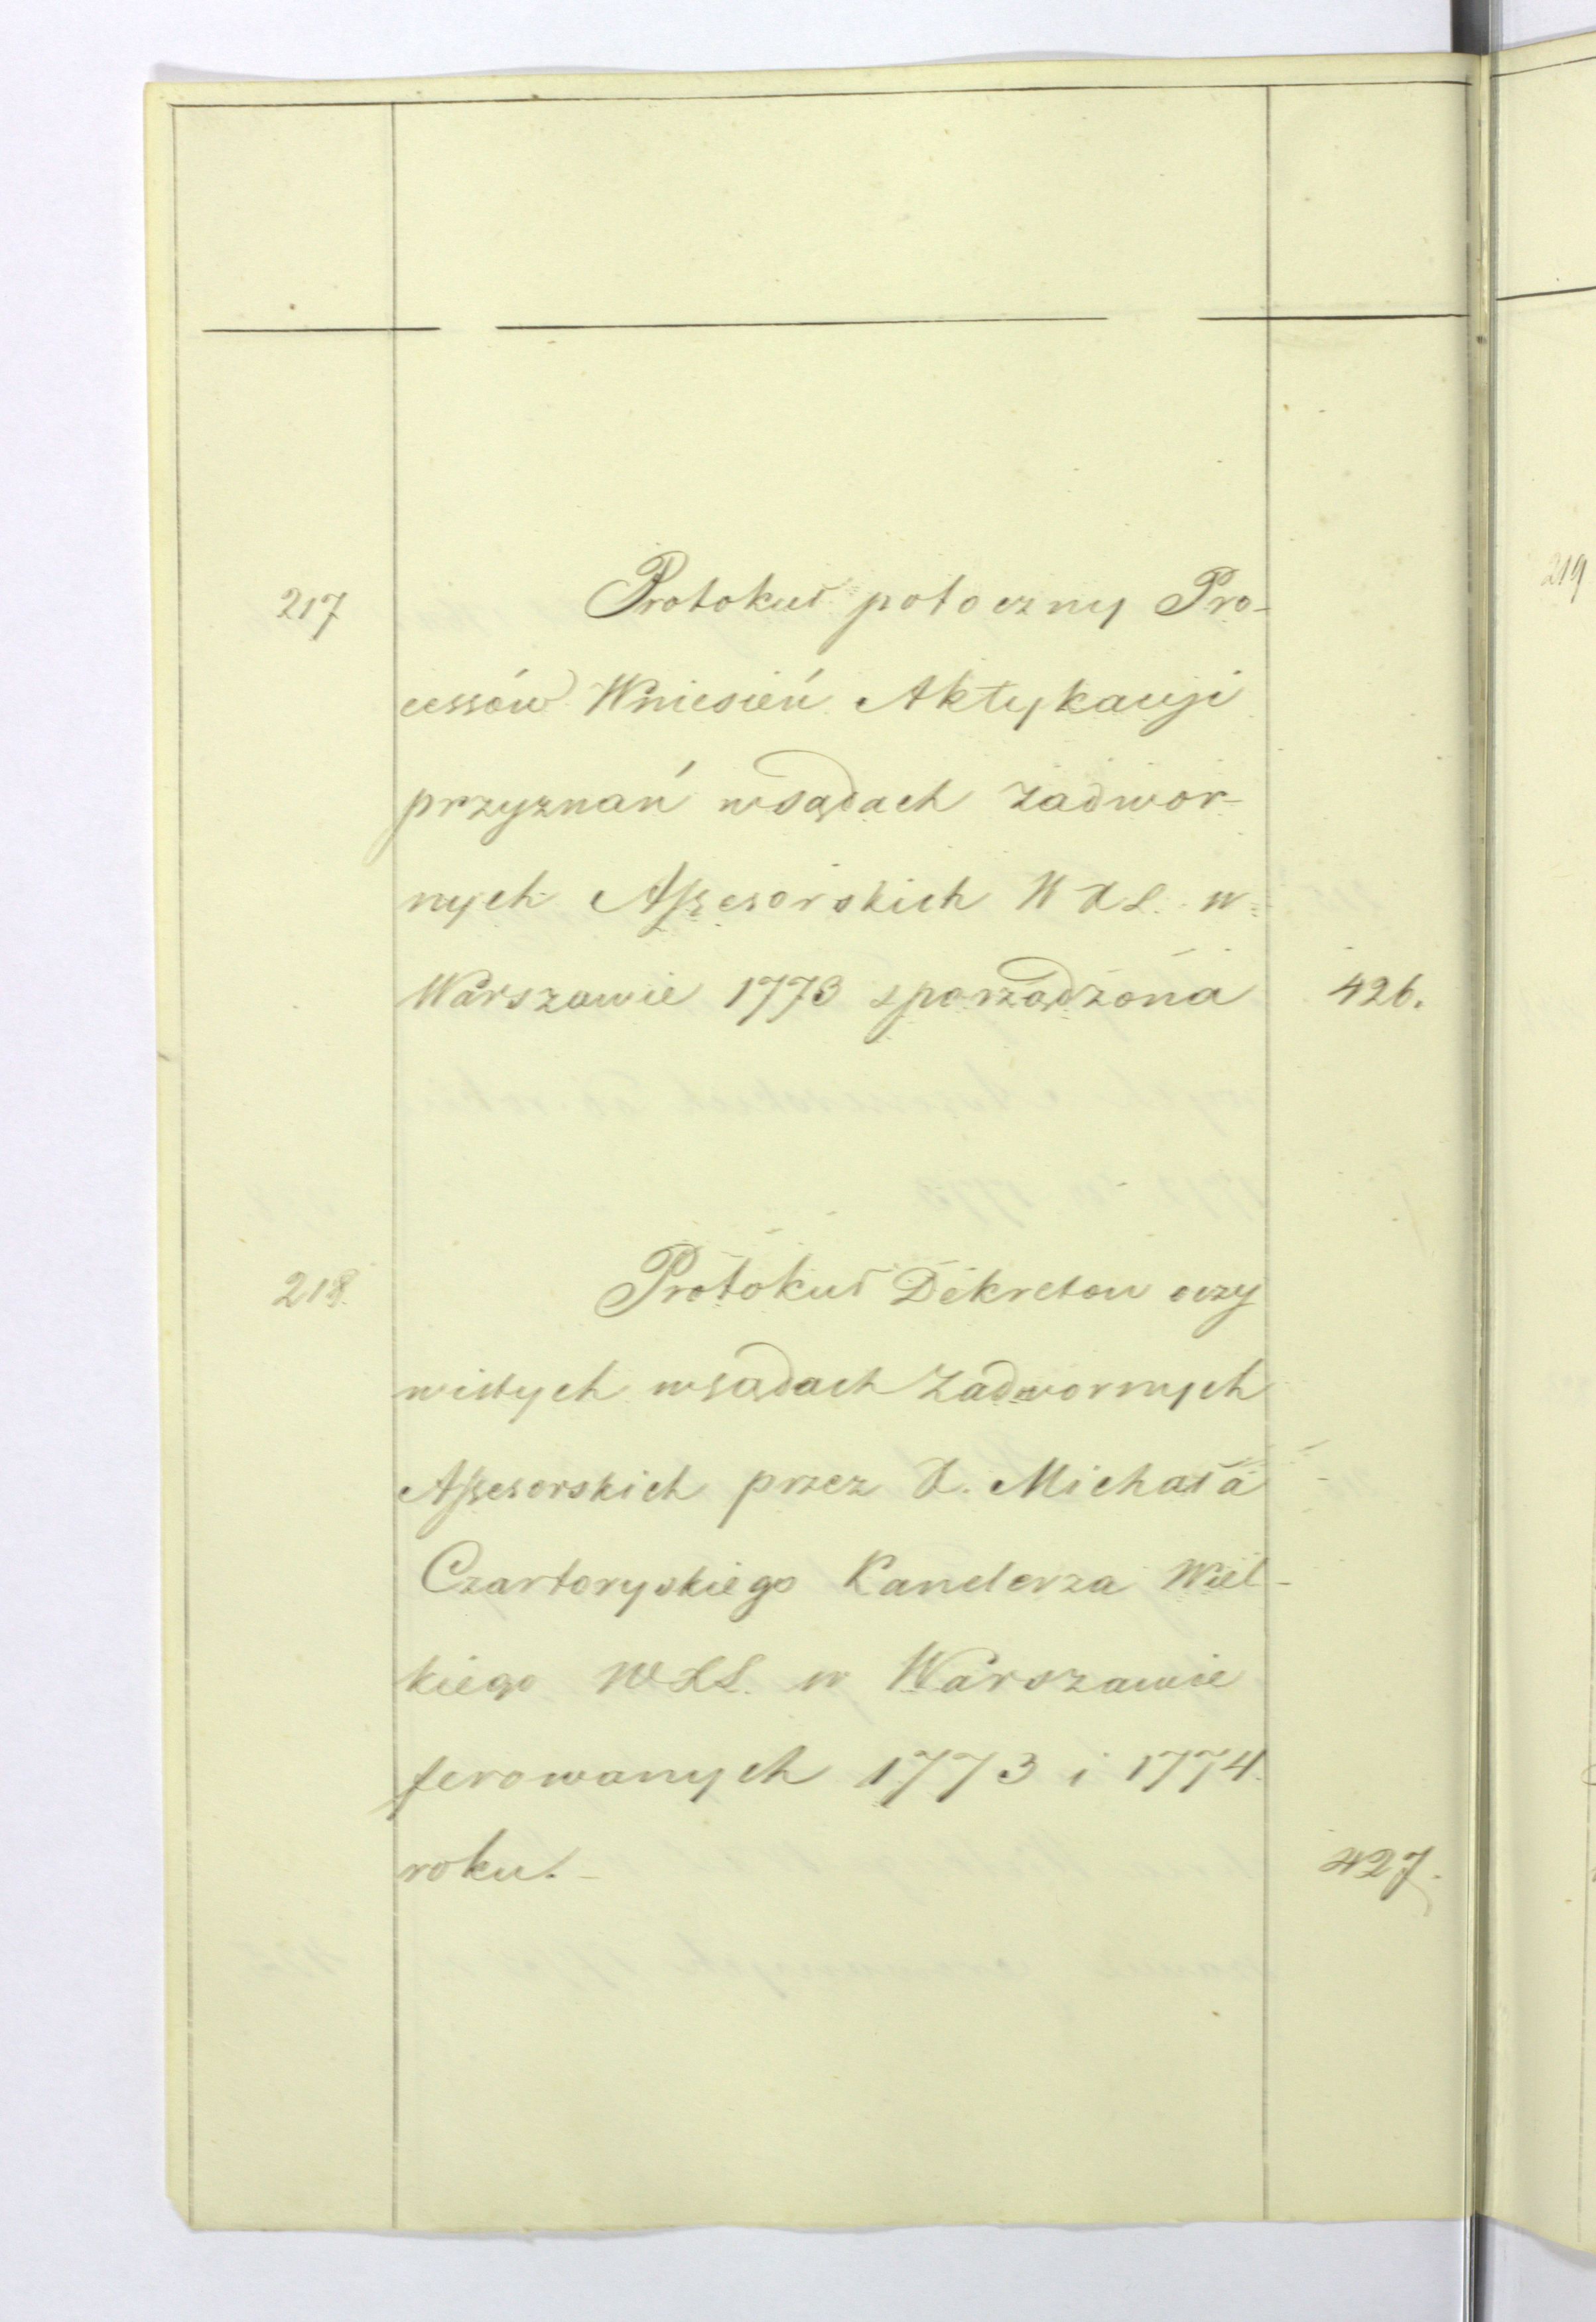 217 Protokuł potoczny Pro-
cessów Wniesień Aktykacyi
przyznań wsądach zadwor-
nych Assesorskich W X L. w
Warszawie 1773 sporządzona 426.
218. Protokuł Dekretow oczy
wistych wsądach Zadwornych
Assesorskich przez X. Michała
Czartoryskiego Kanclerza Wiel-
kiego WXL. w Warszawie
ferowanych 1773 i 1774.
roku. 427.
219